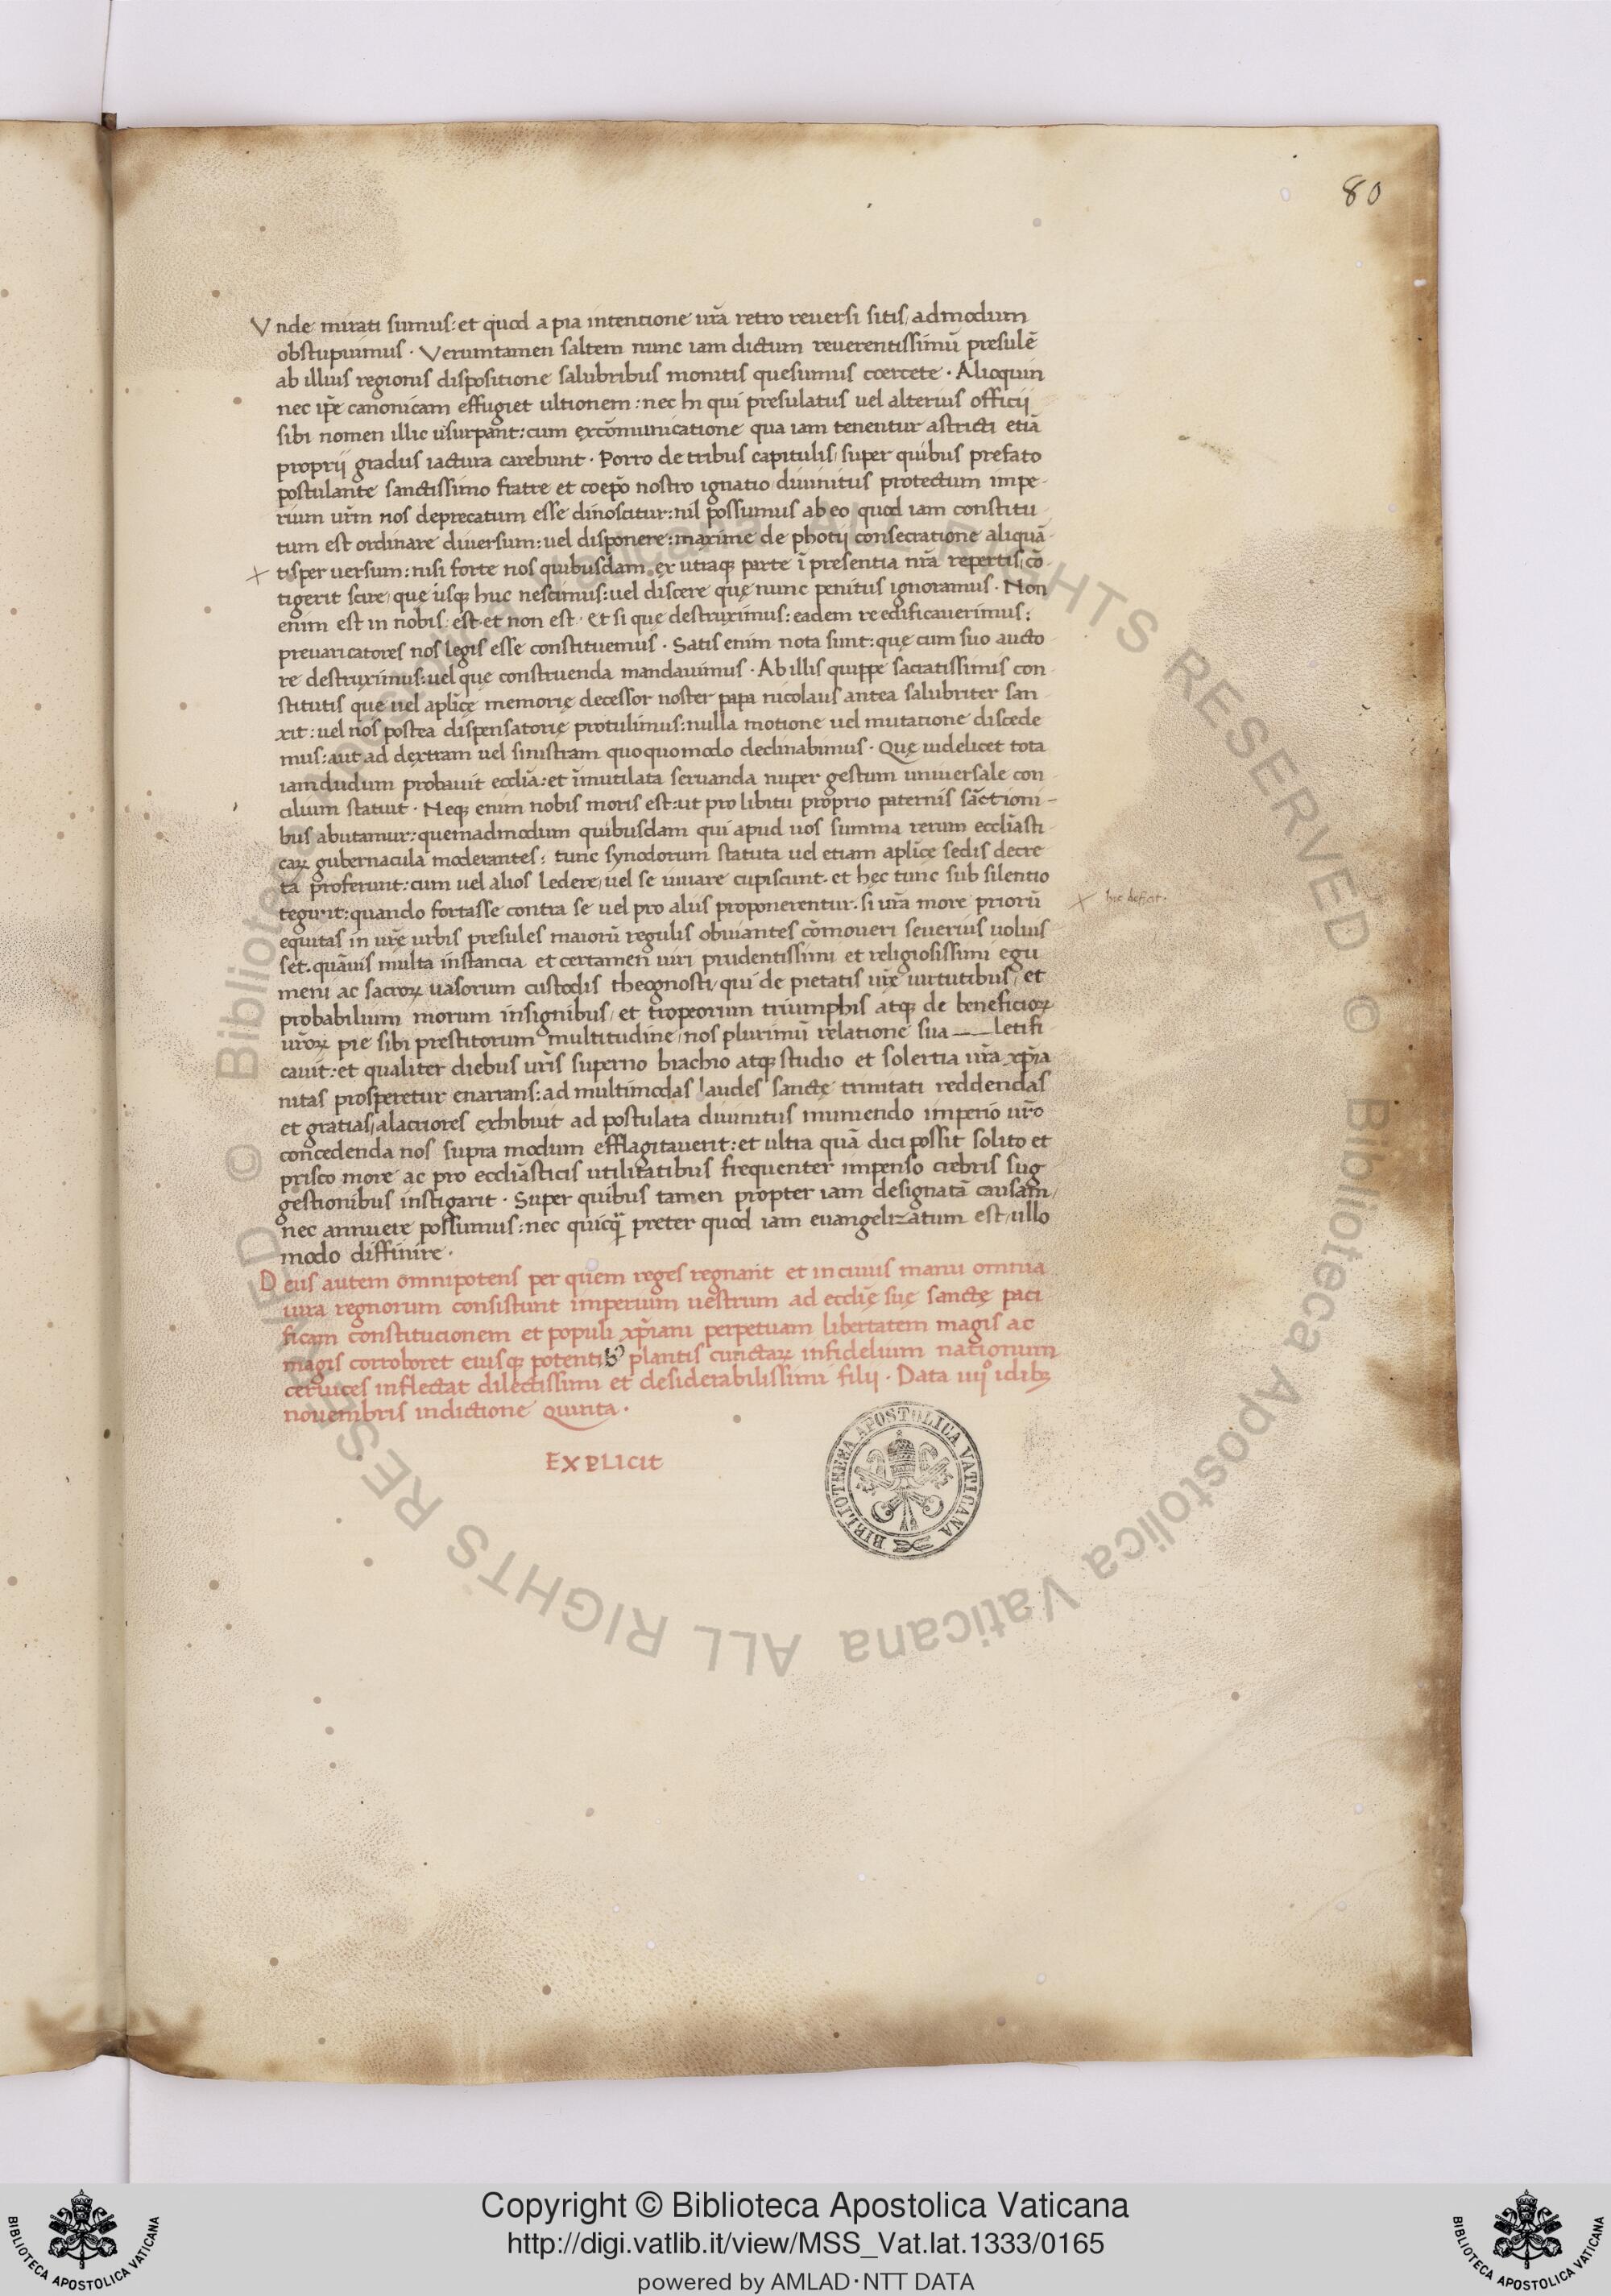 80
Vnde mirati sumus: et quod a pia intentione ur̄a retro reuersi sitis, admodum
obstupuimus · Veruntamen saltem nunc iam dictum reuerentissimū presulē
ab illius regionis dispositione salubribus monitis quesumus coercete · Alioquin
nec ip̄e canonicam effugiet ultionem: nec hi qui presulatus uel alterius officii
sibi nomen illic usurpant: cum excōmunicatione qua iam tenentur astricti etiā
proprii gradus iactura carebunt · Porro de tribus capitulis, super quibus prefato
postulante sanctissimo fratre et coep̄o nostro ignatio, diuinitus protectum impe-
rium ur̄m nos deprecatum esse dinoscitur: nil possumus ab eo, quod iam constitu-
tum est ordinare diuersum: uel disponere: maxime de photii consecratione aliquā-
tisper uersum: nisi forte nos quibusdam, ex utraqꝫ parte ī presentia nr̄a repertis, cō-
tigerit scire, que usqꝫ huc nescimus: uel discere quę nunc penitus ignoramus · Non
enim est in nobis, est et non est · Et si quę destruximus: eadem reedificauerimus:
preuaricatores nos legis esse constituemus · Satis enim nota sunt: quę cum suo aucto-
re destruximus: uel que construenda mandauimus · Ab illis quippe sacratissimis con-
stitutis quę uel apl̄icę memorię decessor noster papa nicolaus antea salubriter san-
xit: uel nos postea dispensatorie protulimus: nulla motione uel mutatione discede-
mus: aut ad dextram uel sinistram quoquomodo declinabimus · Quę uidelicet tota
iamdudum probauit eccl̄ia: et īmutilata seruanda nuper gestum uniuersale con-
cilium statuit · Neqꝫ enim nobis moris est: ut pro libitu proprio paternis sāctioni-
bus abutamur: quemadmodum quibusdam qui apud uos summa rerum eccl̄iasti-
caꝝ gubernacula moderantes: tunc synodorum statuta uel etiam apl̄icę sedis decre-
ta proferunt: cum uel alios ledere, uel se iuuare cupiscunt · et hęc tunc sub silentio
tegunt: quando fortasse contra se uel pro aliis proponerentur · si ur̄a more priorū
hic deficit.
equitas in ur̄ę urbis presules maiorū regulis obuiantes cōmoueri seuerius uoluis-
set · quāuis multa instancia et certamen uiri prudentissimi et religiosissimi egu-
meni ac sacroꝝ uasorum custodis theognosti, qui de pietatis ur̄ę uirtutibus, et
probabilium morum insignibus, et tropeorum triumphis atqꝫ de beneficioꝝ
ur̄oꝝ pie sibi prestitorum multitudine, nos plurimū relatione sua — letifi-
cauit: et qualiter diebus ur̄is superno brachio atqꝫ studio et solertia ur̄a xp̄ia-
nitas prosperetur enarrans: ad multimodas laudes sanctę trinitati reddendas
et gratias, alacriores exhibuit ad postulata diuinitus muniendo imperio ur̄o
concedenda nos supra modum efflagitauerit: et ultra quā dici possit solito et
prisco more ac pro eccl̄iasticis utilitatibus frequenter impenso crebris sug-
gestionibus instigarit · Super quibus tamen propter iam designatā causam,
nec annuere possumus: nec quicq̄ preter quod iam euangelizatum est, ullo
modo diffinire ·
Deus autem omnipotens per quem reges regnant et in cuius manu omnia
iura regnorum consistunt imperium uestrum ad eccl̄ię suę sanctę paci-
ficam constitucionem et populi xp̄iani perpetuam libertatem magis ac
magis corroboret eiusqꝫ potentibꝰ plantis cunctaꝝ infidelium nationum
ceruices inflectat dilectissimi et desiderabilissimi filii · Data iiijº idibꝫ
nouembris indictione quinta ·
EXPLICIT
BIBLIOTHECA APOSTOLICA VATICANA
© Biblioteca Apostolica Vaticana ALL RIGHTS RESERVED © Biblioteca Apostolica Vaticana ALL RIGHTS RESERVED
Copyright © Biblioteca Apostolica Vaticana
http://digi.vatlib.it/view/MSS_Vat.lat.1333/0165
powered by AMLAD·NTT DATA
BIBLIOTECA APOSTOLICA VATICANA
BIBLIOTECA APOSTOLICA VATICANA